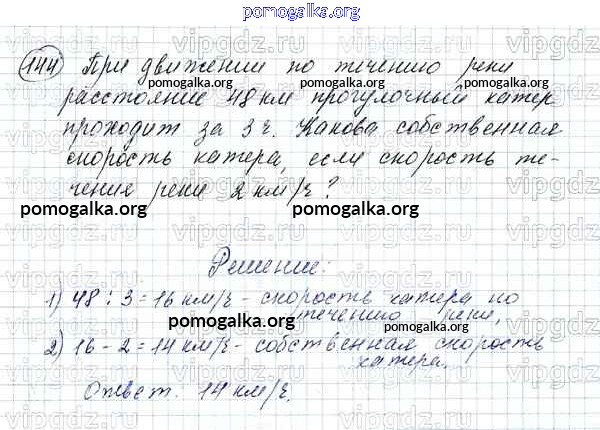 pomogalka.org
144 При движении по течению реки
расстояние 48 км прогулочный катер
проходит за 3 ч. Какова собственная
скорость катера, если скорость те-
чения реки 2 км/ч?
pomogalka.org pomogalka.org
Решение:
1) 48 : 3 = 16 км/ч - скорость катера по
течению реки,
pomogalka.org pomogalka.org
2) 16 - 2 = 14 км/ч - собственная скорость
катера.
Ответ: 14 км/ч.
vipgdz.ru